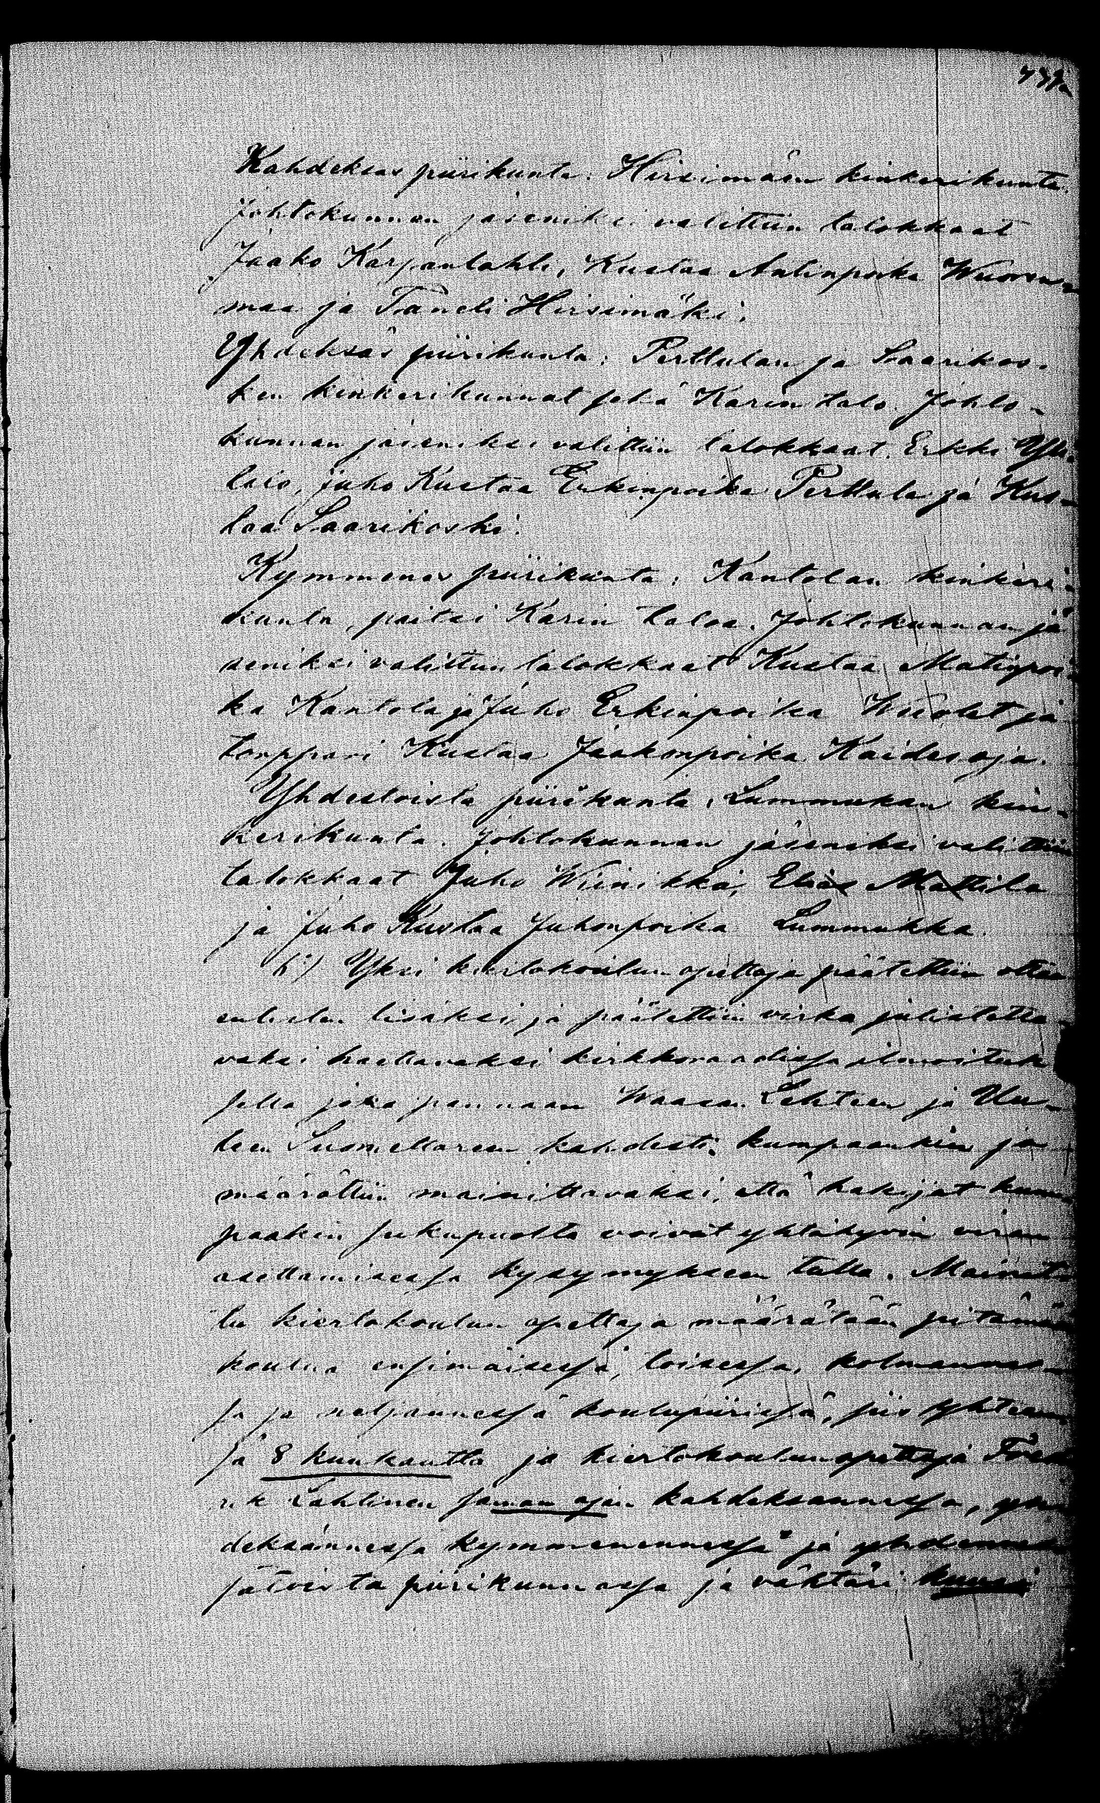 Kahdeksas piirikunta: Hirsimäen kinkerikunta.
Johtokunnan jäseniksi valittiin talokkaat
Jaako Karjanlahti, Kustaa Antinpoika Wuoren-
maa ja Taneli Hirsimäki.
Yhdeksäs piirikunta: Perttulan ja Saarikos-
ken kinkerikunnat sekä Karin talo. Johto-
kunnan jäseniksi valittiin talokkaat Erkki Yli-
talo, Juho Kustaa Erkinpoika Perttula ja Kus-
taa Saarikoski.
Kymmenes piirikunta: Kantolan kinkeri-
kunta, paitsi Karin taloa. Johtokunnan jä
seniksi valittiin talokkaat Kustaa Matinpoi-
ka Kantola ja Juho Erkinpoika ja
torppari Kustaa Jaakonpoika Kaidesoja.
Yhdestoista piirikunta: Lummukan kin-
kerikunta. Johtokunnan jäseniksi valittiin
talokkaat Juho Wiinikka, Elias Mattila
ja Juho Kustaa Juhonpoika Lummukka.
6) Yksi kiertokoulun opettaja päätettiin ottaa
entisten lisäksi ja päätettiin virka julistetta
vaksi haettavaksi kirkkoraadissa ilmoituk
sella joka pannaan Waasan Lehteen ja Uu-
teen Suomettareen kahdesti kumpaankin ja
määrättiin mainittavaksi, että hakijat kum
paakin sukupuolta voivat yhtähyvin viran
asettamisessa kysymykseen tulla. Mainit
tu kiertokoulun opettaja määrätään pitämään
koulua ensimäisessä, toisessa, kolmannes-
sa ja neljännessä koulupiirissä, siis yhteen
sä 8 kuukautta ja kiertokoulunopettaja
Lahtinen saman ajan kahdeksannessa, yh
deksännessä kymmenennessä ja yhdennes
sätoista piirikunnassa ja väktäri kuusi